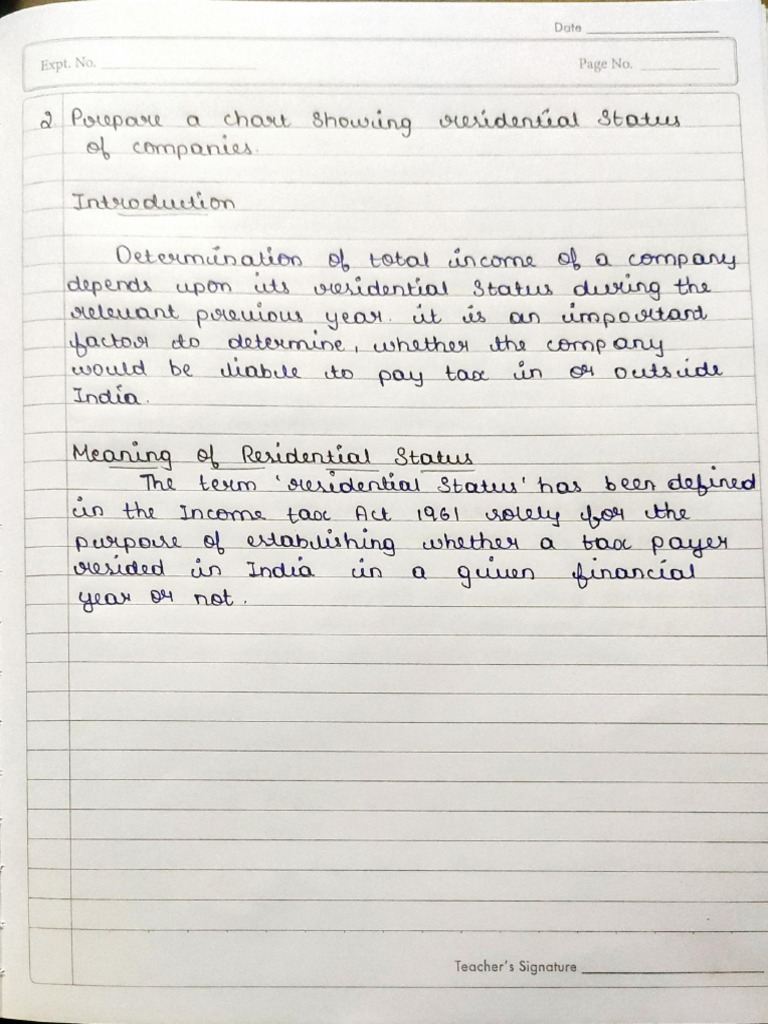 Date
Expt. No.
Page No.
2 Prepare a chart showing residential status
of companies.
Introduction
Determination of total income of a company
depends upon its residential status during the
relevant previous year. it is an important
factor to determine, whether the company
would be liable to pay tax in or outside
India.
Meaning of Residential Status
The term 'residential status' has been defined
in the Income tax Act 1961 solely for the
purpose of establishing whether a tax payer
resided in India in a given financial
year or not.
Teacher's Signature